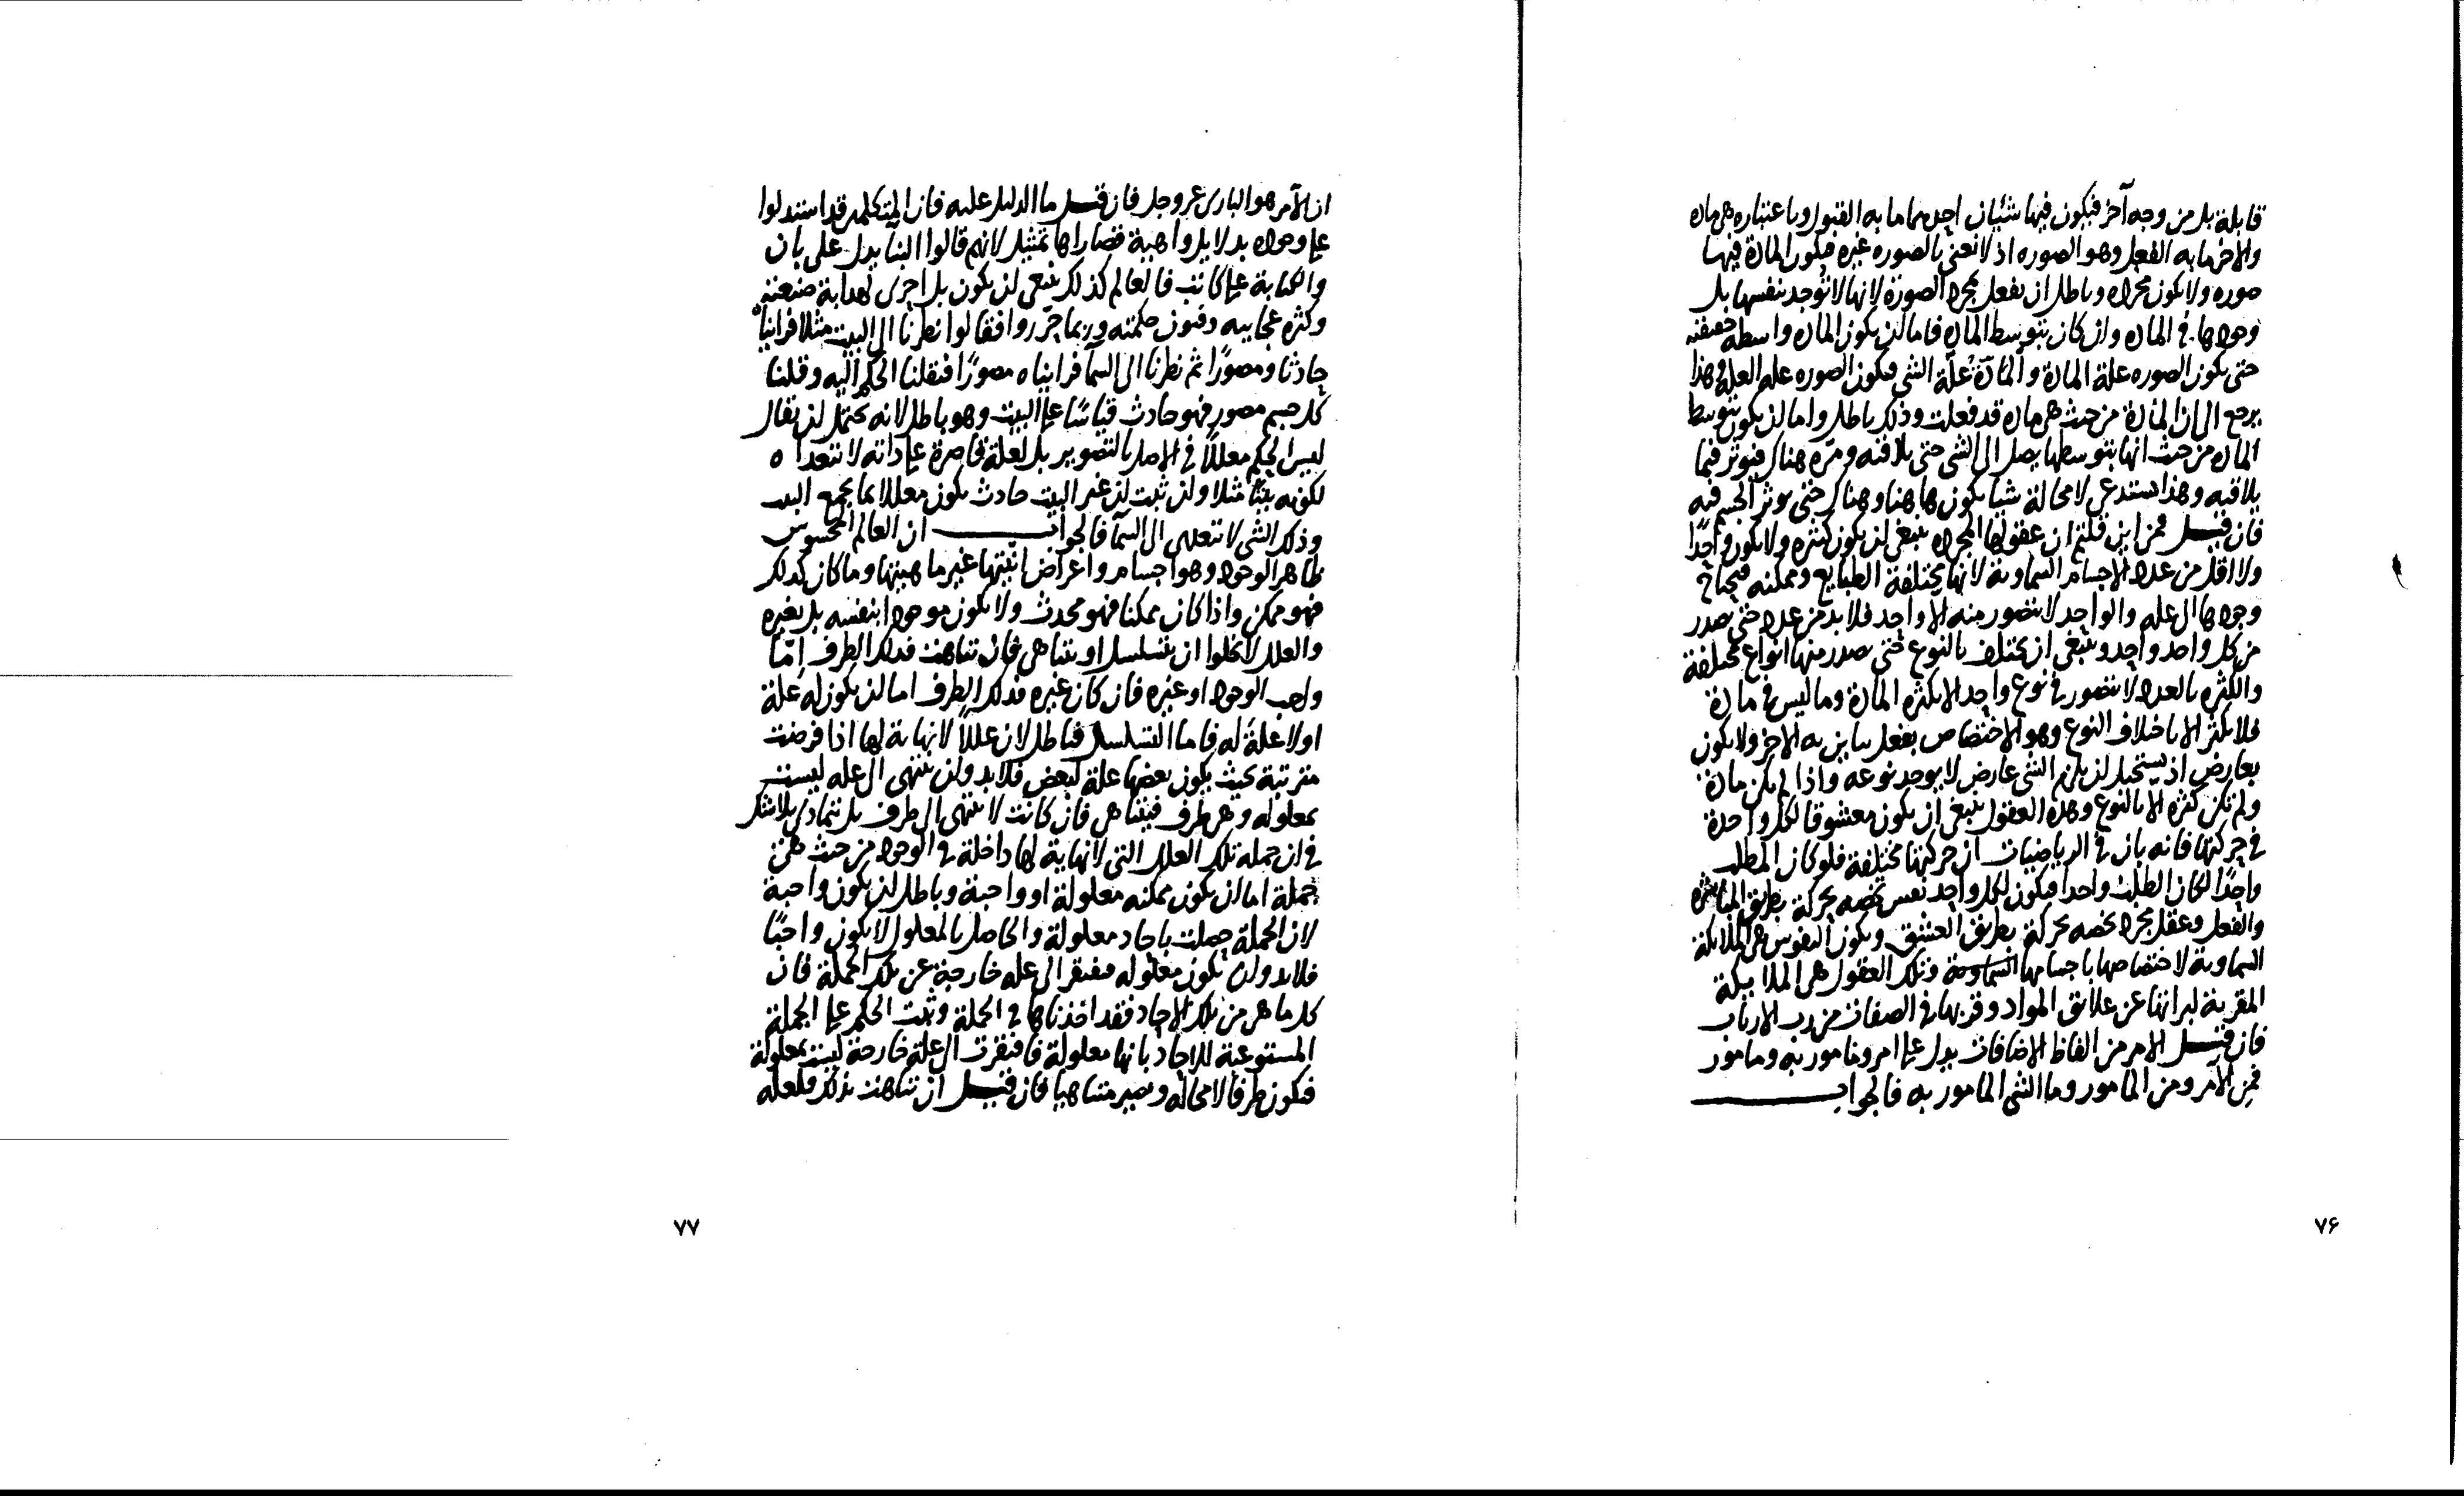 قابلة بل من وجه آخر فيكون فيها شيئان احدهما ما به القبول وباعتباره هي ماده
والاخر ما به الفعل وهو الصوره اذ لا نعنى بالصوره غيره فتكون المادة فيها
صوره ولا يكون مجرده وباطل ان يفعل بمجرد الصورة لانها لا توجد بنفسها بل
وجودها في الماده وان كان بتوسط الماده فاما لن يكون الماده واسطه حقيقته
حتى يكون الصوره علة المادة والمادة علة الشى فيكون الصوره عله العله وهذا
يرجع الى ان المادة من حيث هي ماده قد فعلت وذلك باطل واما لن يكون بتوسط
الماده من حيث انها بتوسطها يصل الى الشى حتى يلاقيه ومره هناك فيوثر فيما
يلاقيه وهذا يستدعى لا محالة شيا يكون هاهنا وهناك حتى يوثر الجسم فيه
فان قيل فمن اين قلتم ان عقولها المجرده ينبغى لن يكون كثيره ولا يكون واحدًا
ولا اقل من عدد الاجسام السماوية لانها مختلفة الطبايع وممكنه فيحتاج
وجودها الى عله والواحد لا يتصور منه الا واحد فلا بد من عدد حتى يصدر
من كل واحد واحد وينبغى ان يختلف بالنوع حتى يصدر منها انواع مختلفة
والكثره بالعدد لا يتصور في نوع واحد الا بكثره المادة وما ليس في مادة
فلا يكثر الا باختلاف النوع وهو الاختصاص بفعل يباين به الاخر ولا يكون
بعارض اذ يستحيل لن يلزم الشى عارض لا يوجد نوعه واذا لم يكن مادة
ولم تكن كثره الا بالنوع وهذه العقول ينبغى ان يكون معشوقا لكل واحدة
في حركتها فانه بان في الرياضيات ان حركتها مختلفة فلو كان المطلب
واحدًا لكان الطلب واحدا فيكون لكل واحد نفس تخصه بحركة بطريق المباشره
والفعل وعقل مجرد يخصه بحركة بطريق العشق ويكون النفوس هي الملائكة
السماوية لاختصاصها باجسامها السماوية وتلك العقول هي الملايكة
المقربة لبراتها عن علائق المواد وقربها في الصفات من رب الارباب
فان قيل الامر من الفاظ الاضافات يدل على امر ومامور به ومامور
فمن الآمر ومن المامور وما الشى المامور به فالجواب
٧۶
ان الآمر هو البارى عز وجل فان قيل ما الدليل عليه فان المتكلمين قد استدلوا
على وجوده بدلايل واهبة فصاراها تمثيل لانهم قالوا البنآ يدل على بان
والكتابة على كاتب فالعالم كذلك ينبغى لن يكون بل احرى لهداية صنعته
وكثره عجايبه وفنون حكمته وربما حرروا فقالوا نظرنا الى البيت مثلا فراينا
حادثا ومصورًا ثم نظرنا الى السمآ فرايناه مصورًا فنقلنا الحكم اليه وقلنا
كل جسم مصور فهو حادث قياسًا على البيت وهو باطل لانه يحتمل لن يقال
ليس الحكم معللًا في الاصل بالتصوير بل لعلة قاصرة على ذاته لا تتعداه
لكونه بيتًا مثلا ولن ثبت لن غير البيت حادث يكون معللا بما يجمع البيت
وذلك الشى لا تتعدى الى السمآ فالجواب ان العالم المحسوس
ظاهر الوجود وهو اجسام واعراض انيتها غير ماهيتها وما كان كذلك
فهو ممكن واذا كان ممكنا فهو محدث ولا يكون موجودا بنفسه بل بغيره
والعلل لا تخلوا ان يتسلسل او يتناهى فان تناهت فذلك الطرف امّا
واجب الوجود او غيره فان كان غيره فذلك الطرف اما لن يكون له علة
او لا علة له فاما التسلسل فباطل لان عللًا لا نهاية لها اذا فرضت
مترتبة بحيث يكون بعضها علة لبعض فلا بد ولن ينتهى الى عله ليست
بمعلوله وهي طرف فيتناهى فان كانت لا تنتهى الى طرف بل تتمادى بلا شك
في ان جمله تلك العلل التى لا نهاية لها داخلة في الوجود من حيث هي
جملة اما ان يكون ممكنه معلولة او واجبة وباطل لن يكون واجبة
لان الجملة حصلت باحاد معلولة والحاصل بالمعلول لا يكون واجبًا
فلا بد ولن يكون معلوله فيفتقر الى عله خارجة عن تلك الجملة فان
كل ما هي من تلك الاحاد فقد اخذناها في الجملة وثبت الحكم على الجملة
المستوعبة للاحاد بانها معلولة فافتقرت الى علة خارجة ليست بمعلولة
فيكون طرفا لا محالة ويصير متناهيا فان قيل ان تناهت بذلك فلعله
٧٧